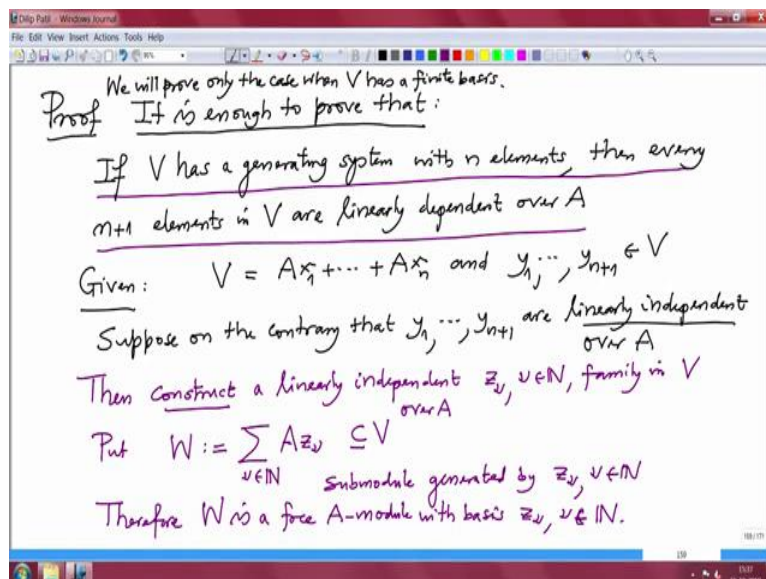 Dilip Patil - Windows Journal
File Edit View Insert Actions Tools Help
We will prove only the case when V has a finite basis.
Proof It is enough to prove that:
If V has a generating system with n elements, then every
n+1 elements in V are linearly dependent over A
Given: V = Ax₁ + ⋯ + Axₙ and y₁, ⋯, yₙ₊₁ ∈ V
Suppose on the contrary that y₁, ⋯, yₙ₊₁ are linearly independent
over A
Then construct a linearly independent z_ν, ν∈ℕ, family in V
over A
Put W := ∑ Az_ν ⊆ V
ν∈ℕ
submodule generated by z_ν, ν∈ℕ
Therefore W is a free A-module with basis z_ν, ν∈ℕ.
159
15:37